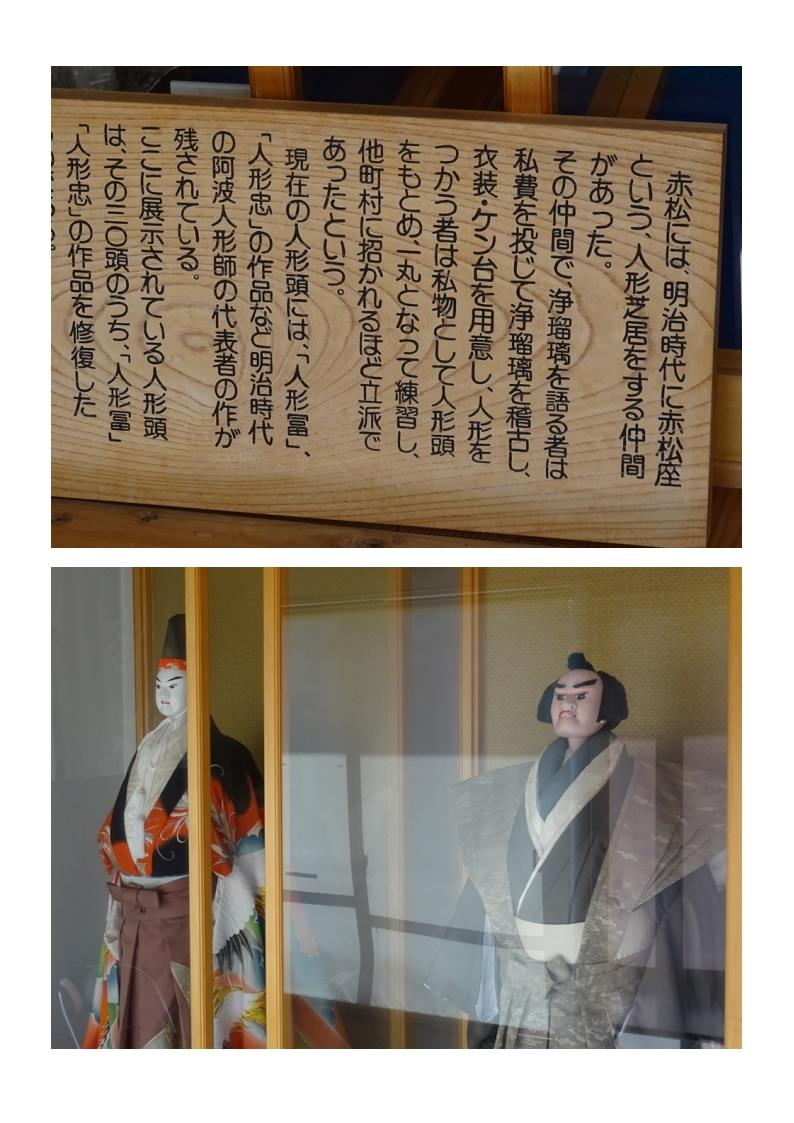 赤松には、明治時代に赤松座
という、人形芝居をする仲間
があった。
その仲間で、浄瑠璃を語る者は
私費を投じて浄瑠璃を稽古し、
衣装・ケン台を用意し、人形を
つかう者は私物として人形頭
をもとめ、一丸となって練習し、
他町村に招かれるほど立派で
あったという。
現在の人形頭には、「人形冨」、
「人形忠」の作品など明治時代
の阿波人形師の代表者の作が
残されている。
ここに展示されている人形頭
は、その三〇頭のうち、「人形冨」
「人形忠」の作品を修復した